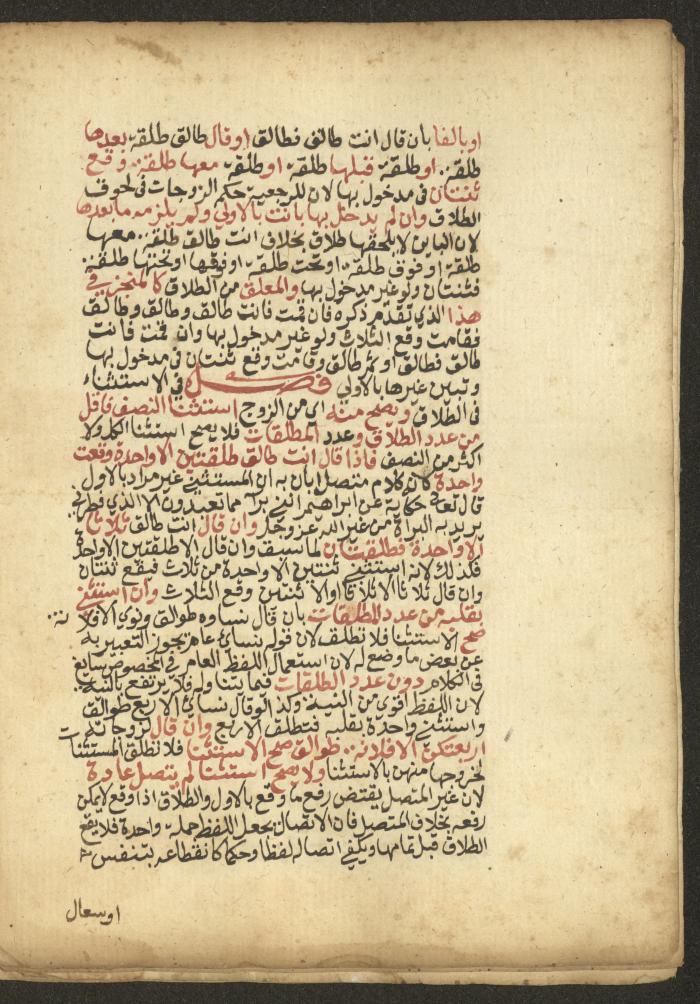 او بالفا بان قال انت طالق فطالق او قال طالق طلقة بعدها
طلقة او طلقة قبلها طلقة او طلقة معها طلقة وقع
ثنتان في مدخول بها لان للرجعية حكم الزوجات في لحوق
الطلاق وان لم يدخل بها بانت بالاولي ولم يلزمه ما بعدها
لان الباين لا يلحقها طلاق بخلاف انت طالق طلقة معها
طلقة او فوق طلقة او تحت طلقة او فوقها او تحتها طلقة
فثنتان ولو غير مدخول بها والمعلق من الطلاق كالمنجز في
هذا الذي تقدم ذكره فان قمت فانت طالق وطالق وطالق
فقامت وقع الثلاث ولو غير مدخول بها وان قمت فانت
طالق فطالق او ثم طالق وقامت وقع ثنتان في مدخول بها
وتبين غيرها بالاولي فصل في الاستثناء
في الطلاق ويصح منه اي من الزوج استثنا النصف فاقل
من عدد الطلاق وعدد المطلقات فلا يصح استثنا الكل ولا
اكثر من النصف فاذا قال انت طالق طلقتين الا واحدة وقعت
واحدة لانه كلام متصل ابان به ان المستثني غير مراد بالاول
قال تعالي حكاية عن ابراهيم انني برآ مما تعبدون الا الذي فطرني
يريد به البراة من غير الله عز وجل وان قال انت طالق ثلاثا
الا واحدة فطلقتان لما سبق وان قال الا طلقتين الا واحدة
فكذلك لانه استثني ثنتين الا واحدة من ثلاث فيقع ثنتان
وان قال ثلاثا الا ثلاثا او الا ثنتين وقع الثلاث وان استثني
بقلبه من عدد المطلقات بان قال نساوه طوالق ونوي الا فلانة
صح الاستثنا فلا تطلق لان قوله نسائي عام يجوز التعبير به
عن بعض ما وضع له لان استعمال اللفظ العام في الخصوص سايغ
في الكلام دون عدد الطلقات فما يتناوله فلا يرتفع بالنية
لان اللفظ اقوي من النية وكذا لو قال نسائي الاربع طوالق
واستثني واحدة بقلبه فتطلق الاربع وان قال لزوجاته
اربعتكن الا فلانة طوالق صح الاستثنا فلا تطلق المستثنات
لخروجها منهن بالاستثنا ولا يصح استثنا لم يتصل عادة
لان غير المتصل يقتضي رفع ما وقع بالاول والطلاق اذا وقع لا يمكن
رفعه بخلاف المتصل فان الاتصال يجعل اللفظ جملة واحدة فلا يقع
الطلاق قبل تمامها ويكفي اتصاله لفظا او حكما كانقطاعه بتنفس
او سعال